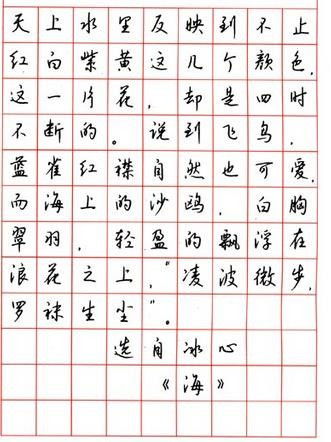 天上水里反映到不止
红白紫黄这几个颜色，
这一片花，却是四时
不断的。说到飞鸟，
蓝雀红襟自然也可爱，
而海上的沙鸥，白胸
翠羽，轻盈的飘浮在
浪花之上，“凌波微步，
罗袜生尘”。
选自冰心
《海》